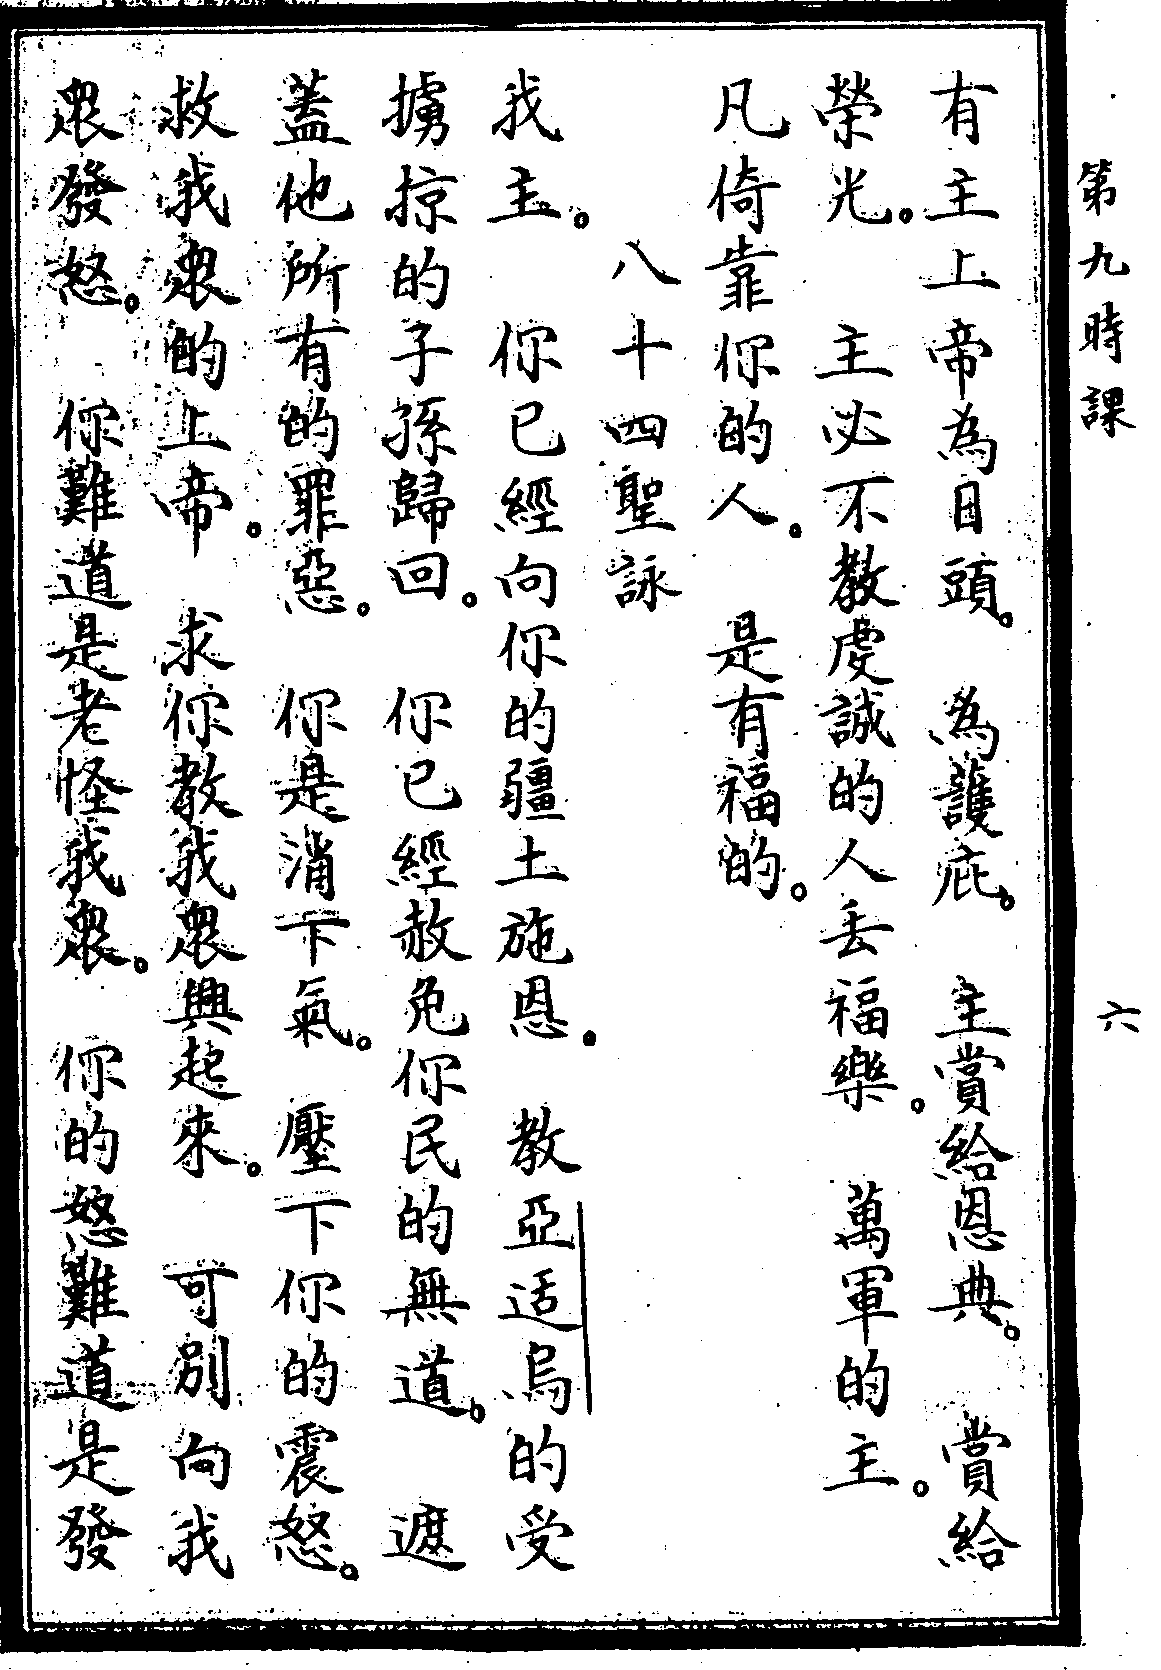 第九時課 六
有主上帝為日頭。 為護庇。 主賞給恩典。 賞給
榮光。 主必不教虔誠的人丢福樂。 萬軍的主。
凡倚靠你的人。 是有福的。
八十四聖詠
我主。 你已經向你的疆土施恩。 教亞适烏的受
擄掠的子孫歸回。 你已經赦免你民的無道。 遮
蓋他所有的罪惡。 你是消下氣。 壓下你的震怒。
救我眾的上帝。 求你教我眾興起來。 可別向我
眾發怒。 你難道是老怪我眾。 你的怒難道是發